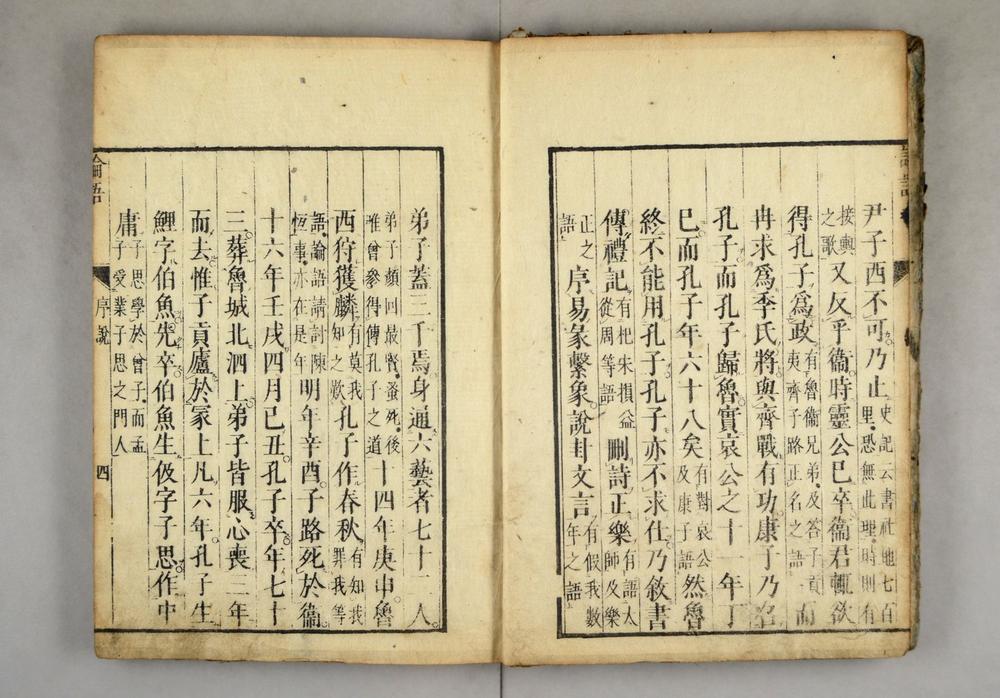 尹子西不可乃止史記云書社地七百里恐無此理時則有
接輿之歌又反乎衞時靈公已卒衞君輒欲
得孔子爲政有魯衞兄弟及答子貢夷齊子路正名之語而
冉求爲季氏將與齊戰有功康子乃召
孔子而孔子歸魯實哀公之十一年丁
巳而孔子年六十八矣有對哀公及康子語然魯
終不能用孔子孔子亦不求仕乃敘書
傳禮記有杞宋損益從周等語刪詩正樂有語大師及樂
正之語序易彖繫象說卦文言有假我數年之語
弟子蓋三千焉身通六藝者七十二人
弟子顏回最賢蚤死後惟曾參得傳孔子之道十四年庚申魯
西狩獲麟有莫我知之歎孔子作春秋有知我罪我等
語論語請討陳恆事亦在是年明年辛酉子路死於衞
十六年壬戌四月己丑孔子卒年七十
三葬魯城北泗上弟子皆服心喪三年
而去惟子貢廬於冢上凡六年孔子生
鯉字伯魚先卒伯魚生伋字子思作中
庸子思學於曾子而孟子受業子思之門人
論語 序說 四